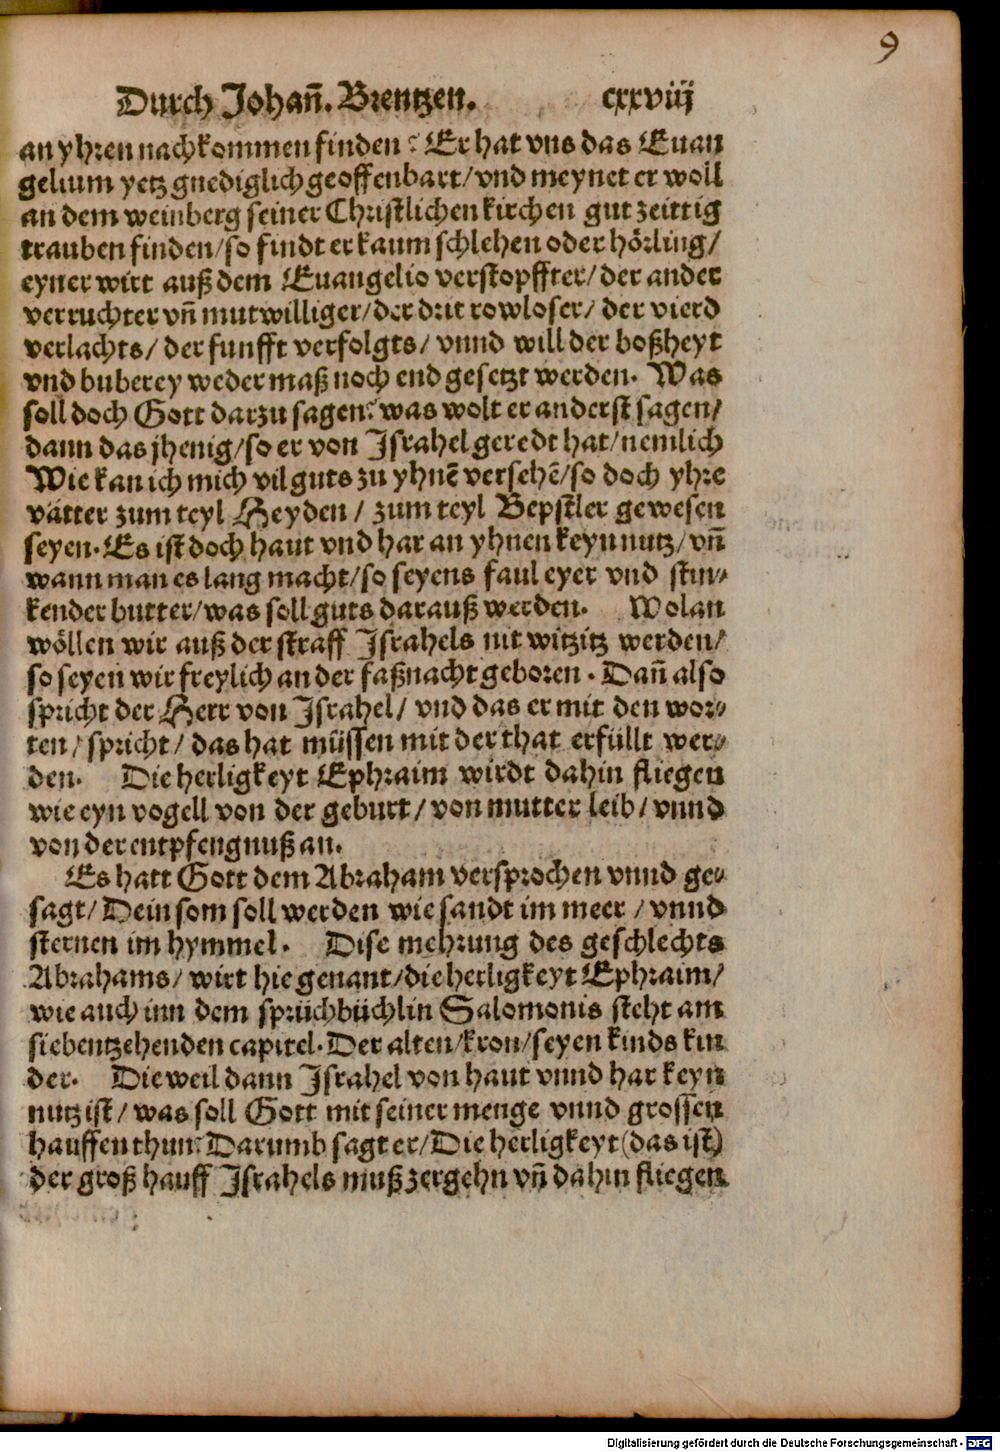 9
Durch Johañ. Brentzen. cxxviij
an yhren nachkommen finden? Er hat vns das Euan
gelium yetz gnediglich geoffenbart/vnd meynet er woll
an dem weinberg seiner Christlichen kirchen gut zeittig
trauben finden/so findt er kaum schlehen oder hörling/
eyner wirt auß dem Euangelio verstopffter/der ander
verruchter vñ mutwilliger/der drit rowloser/ der vierd
verlachts/ der funfft verfolgts/ vnnd will der boßheyt
vnd buberey weder maß noch end gesetzt werden. Was
soll doch Gott darzu sagen? was wolt er anderst sagen/
dann das jhenig/so er von Israhel geredt hat/nemlich
Wie kan ich mich vil guts zu yhnē versehē/so doch yhre
vätter zum teyl Heyden / zum teyl Bepstler gewesen
seyen. Es ist doch haut vnd har an yhnen keyn nutz/ vñ
wann man es lang macht/so seyens faul eyer vnd stin⸗
kender butter/was soll guts darauß werden. Wolan
wöllen wir auß der straff Israhels nit witzitz werden/
so seyen wir freylich an der faßnacht geboren. Dañ also
spricht der Herr von Israhel/ vnd das er mit den wor⸗
ten/ spricht/ das hat müssen mit der that erfüllt wer⸗
den. Die herligkeyt Ephraim wirdt dahin fliegen
wie eyn vogell von der geburt/ von mutter leib/ vnnd
von der entpfengnuß an.
Es hatt Gott dem Abraham versprochen vnnd ge⸗
sagt/ Dein som soll werden wie sandt im meer / vnnd
sternen im hymmel. Dise mehrung des geschlechts
Abrahams/ wirt hie genant/die herligkeyt Ephraim/
wie auch inn dem sprüchbüchlin Salomonis steht am
siebentzehenden capitel. Der alten/kron/seyen kinds kin
der. Dieweil dann Israhel von haut vnnd har keyn
nutz ist/ was soll Gott mit seiner menge vnnd grossen
hauffen thun? Darumb sagt er/Die herligkeyt (das ist)
der groß hauff Israhels muß zergehn vñ dahin fliegen
Digitalisierung gefördert durch die Deutsche Forschungsgemeinschaft - DFG